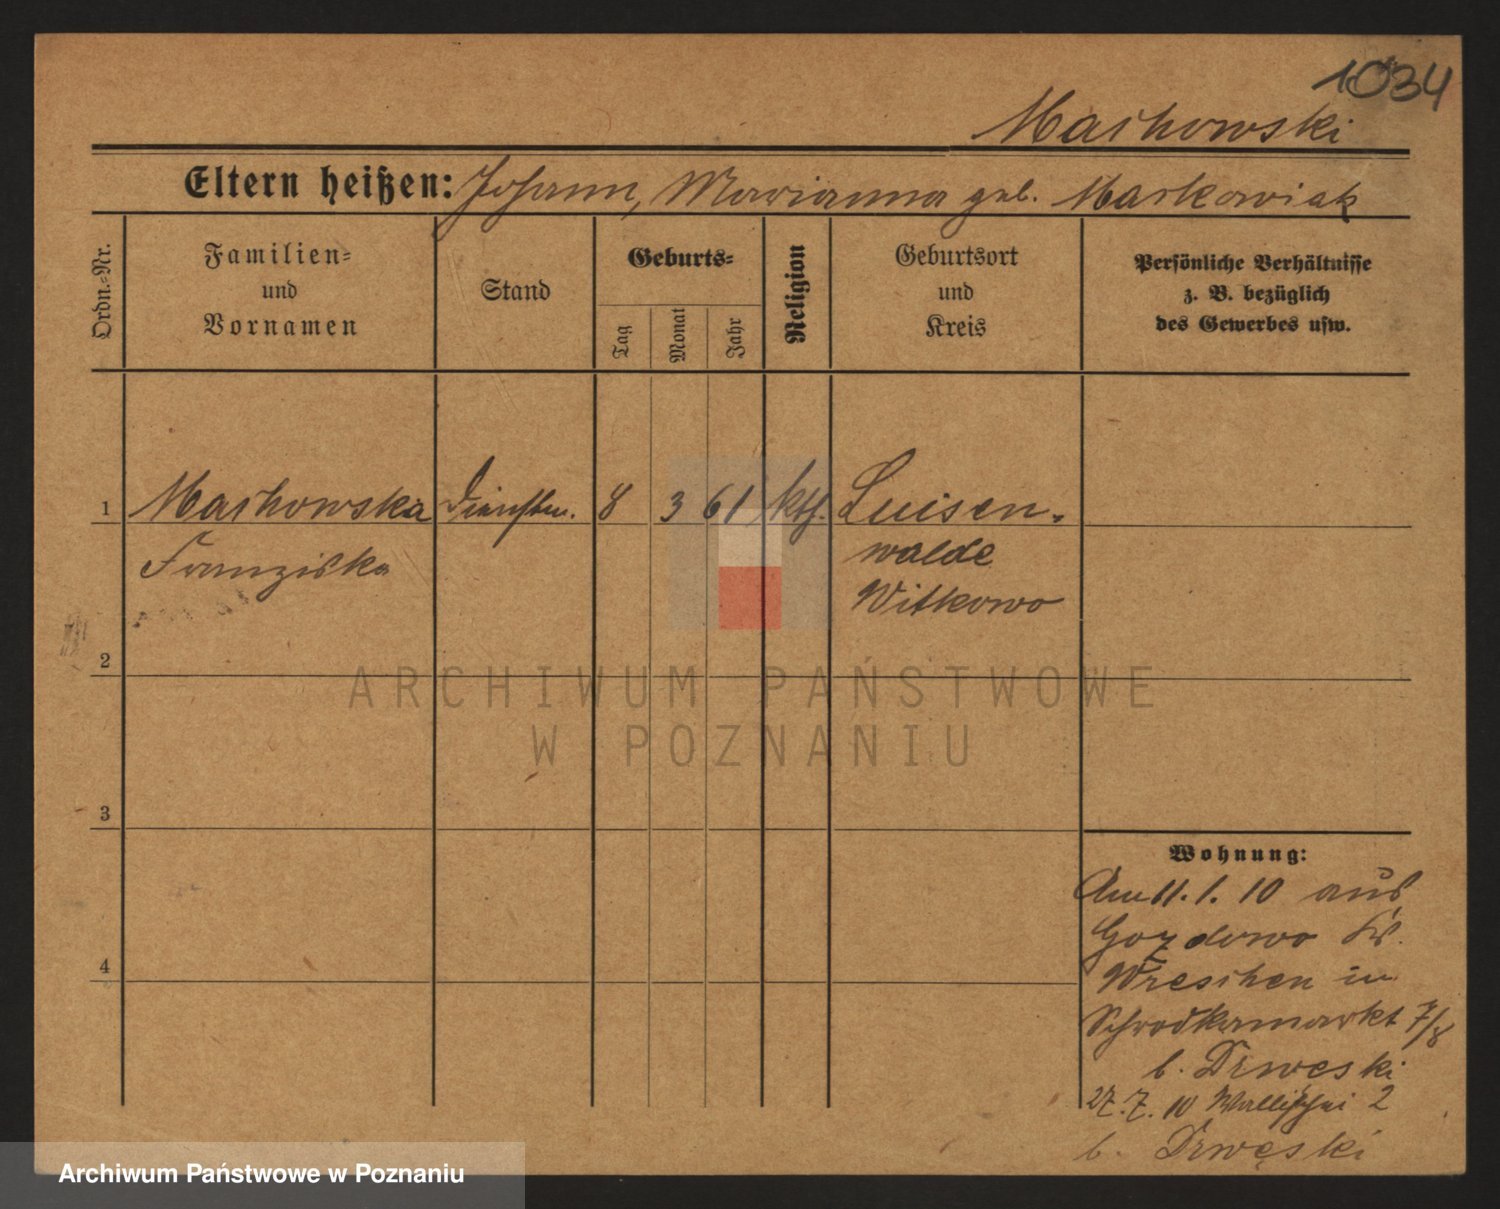 1034
Machowski
Eltern heißen: Johann, Marianna geb. Markowiak
Ordn.-Nr.
Familien-
und
Vornamen
Stand
Geburts-
Tag
Monat
Jahr
Religion
Geburtsort
und
Kreis
Persönliche Verhältnisse
z. B. bezüglich
des Gewerbes usw.
1 Machowska 8 3 61 kth. Luisen-
Franziska walde
Witkowo
2
3
4
Wohnung:
Am 11.1.10 aus
Gozdowo Kr.
Wreschen in
Schrodkamarkt 7/8
b. Drwęski
27.7.10 Wallischei 2
b. Drwęski
ARCHIWUM PAŃSTWOWE
W POZNANIU
Archiwum Państwowe w Poznaniu